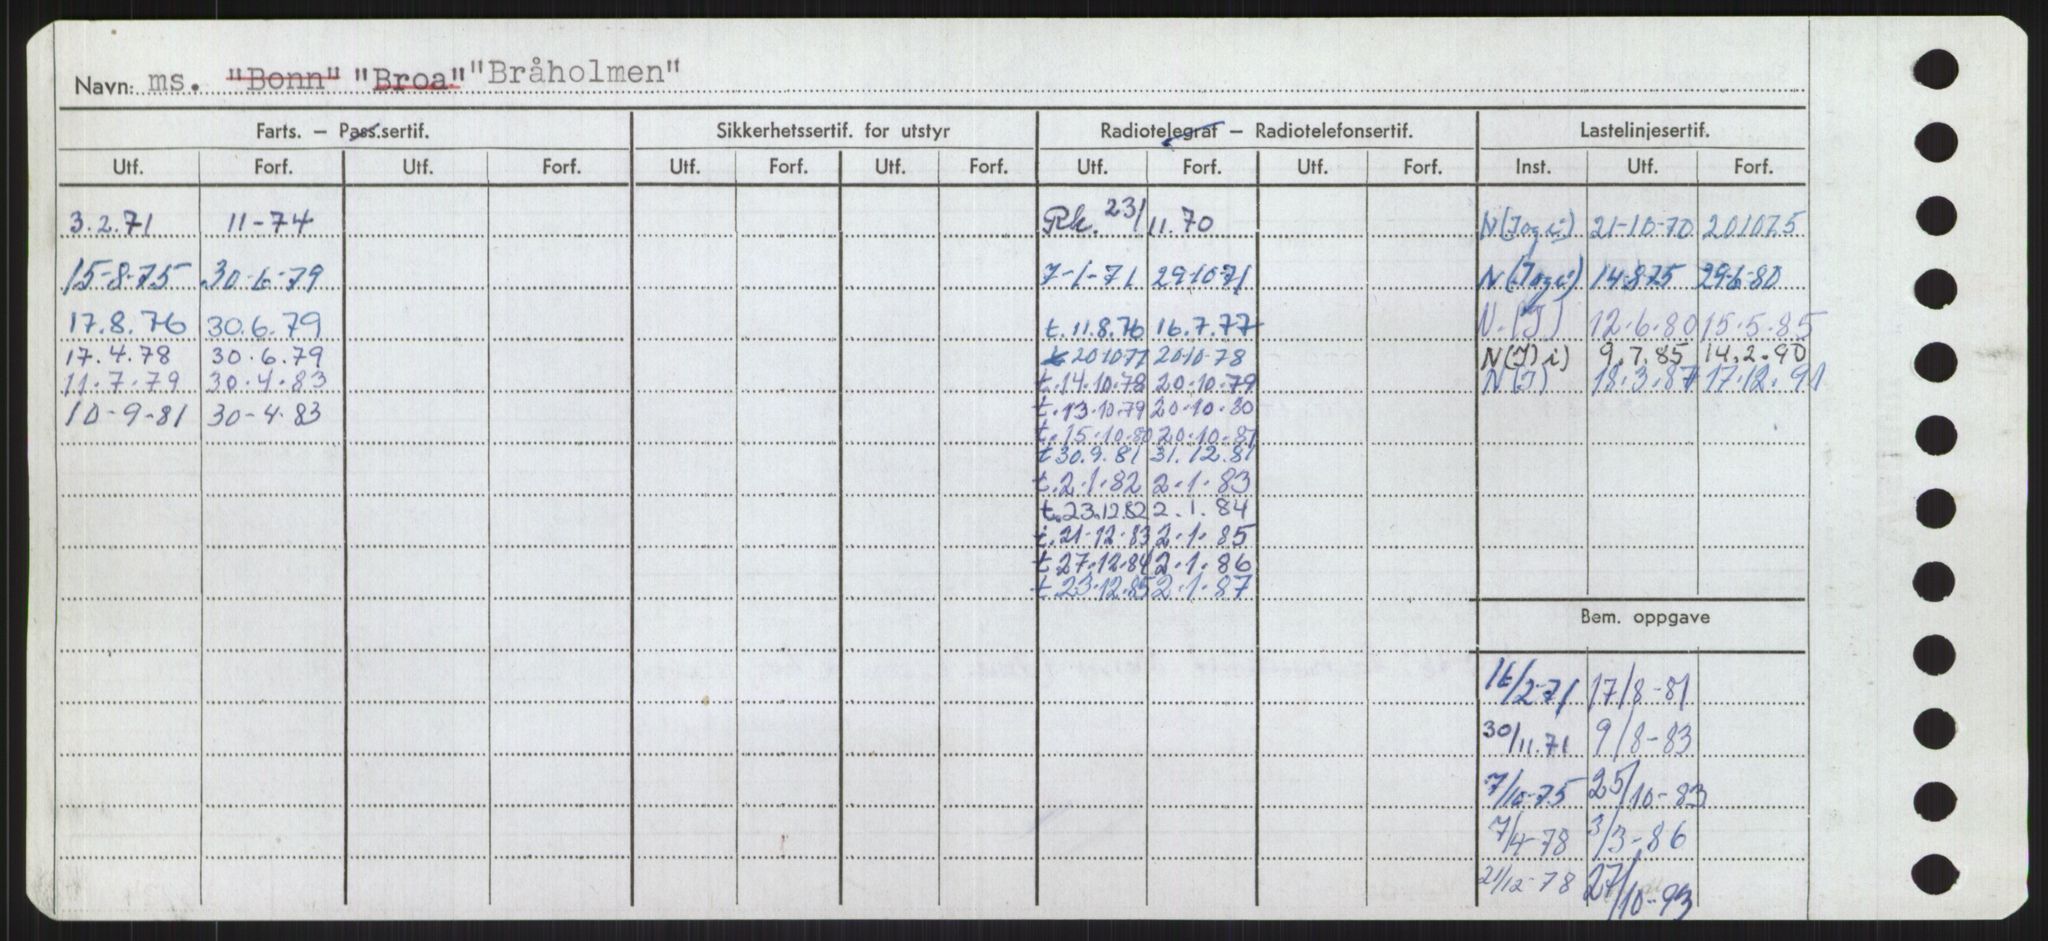 Navn: ms. "Bonn" "Broa" "Bråholmen"
Farts. – Pass.sertif. Sikkerhetssertif. for utstyr Radiotelegraf – Radiotelefonsertif. Lastelinjesertif.
Utf. Forf. Utf. Forf. Utf. Forf. Utf. Forf. Utf. Forf. Utf. Forf. Inst. Utf. Forf.
3.2.71 11-74 Rk. 23/11.70 N(Jogi) 21-10-70 201075
15-8-75 30-6-79 7-1-71 29-10-71 N(Jogi) 14-8-75 29-6-80
17.8.76 30.6.79 t. 11.8.76 16.7.77 N.(J) 12.6.80 15.5.85
17.4.78 30.6.79 t 20-10-77 20-10-78 N(J)i) 9.7.85 14.2.90
11.7.79 30.4.83 t. 14.10.78 20.10.79 N(J) 18.3.87 17.12.91
10-9-81 30-4-83 t. 13.10.79 20.10.80
t. 15.10.80 20.10.81
t 30.9.81 31.12.81
t. 2.1.82 2.1.83
t. 23.12.82 2.1.84
t. 21-12-83 2-1-85
t. 27.12.84 2.1.86
t. 23.12.85 2.1.87
Bem. oppgave
16/2-71 17/8-81
30/11.71 9/8-83
7/10-75 25/10-83
7/4-78 3/3-86
21/12-78 27/10-93